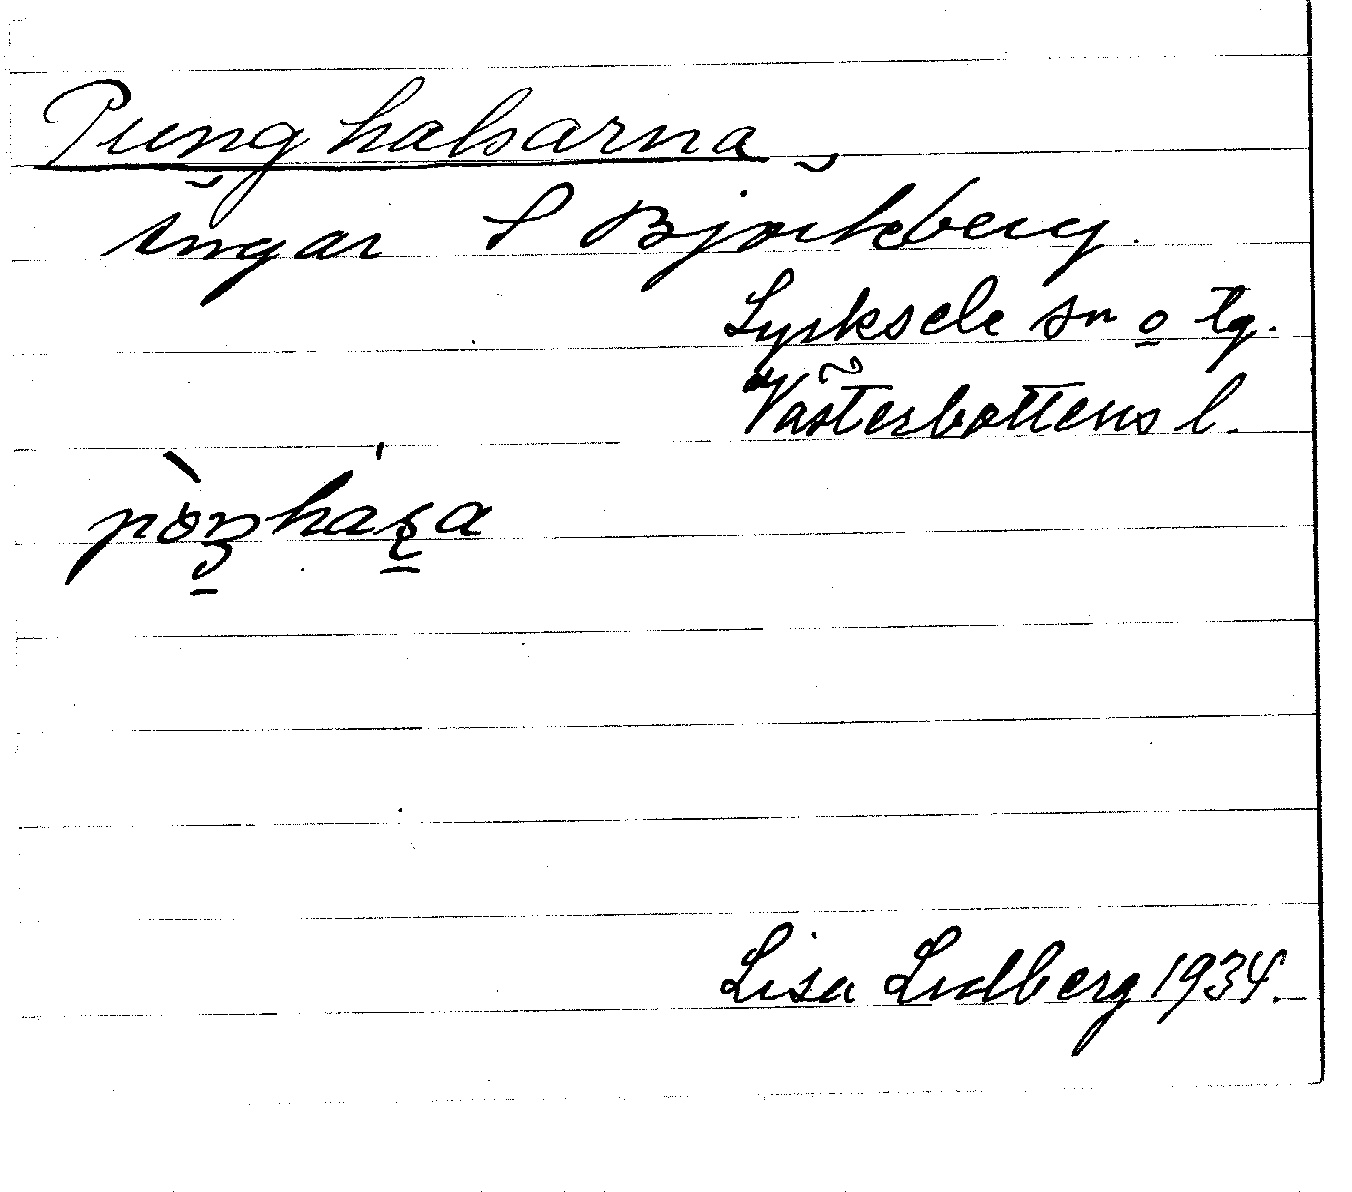 Punghalsarna,
ängar S Björkberg.
Lycksele sn o tg.
Västerbottens l.
Lisa Lidberg 1934.